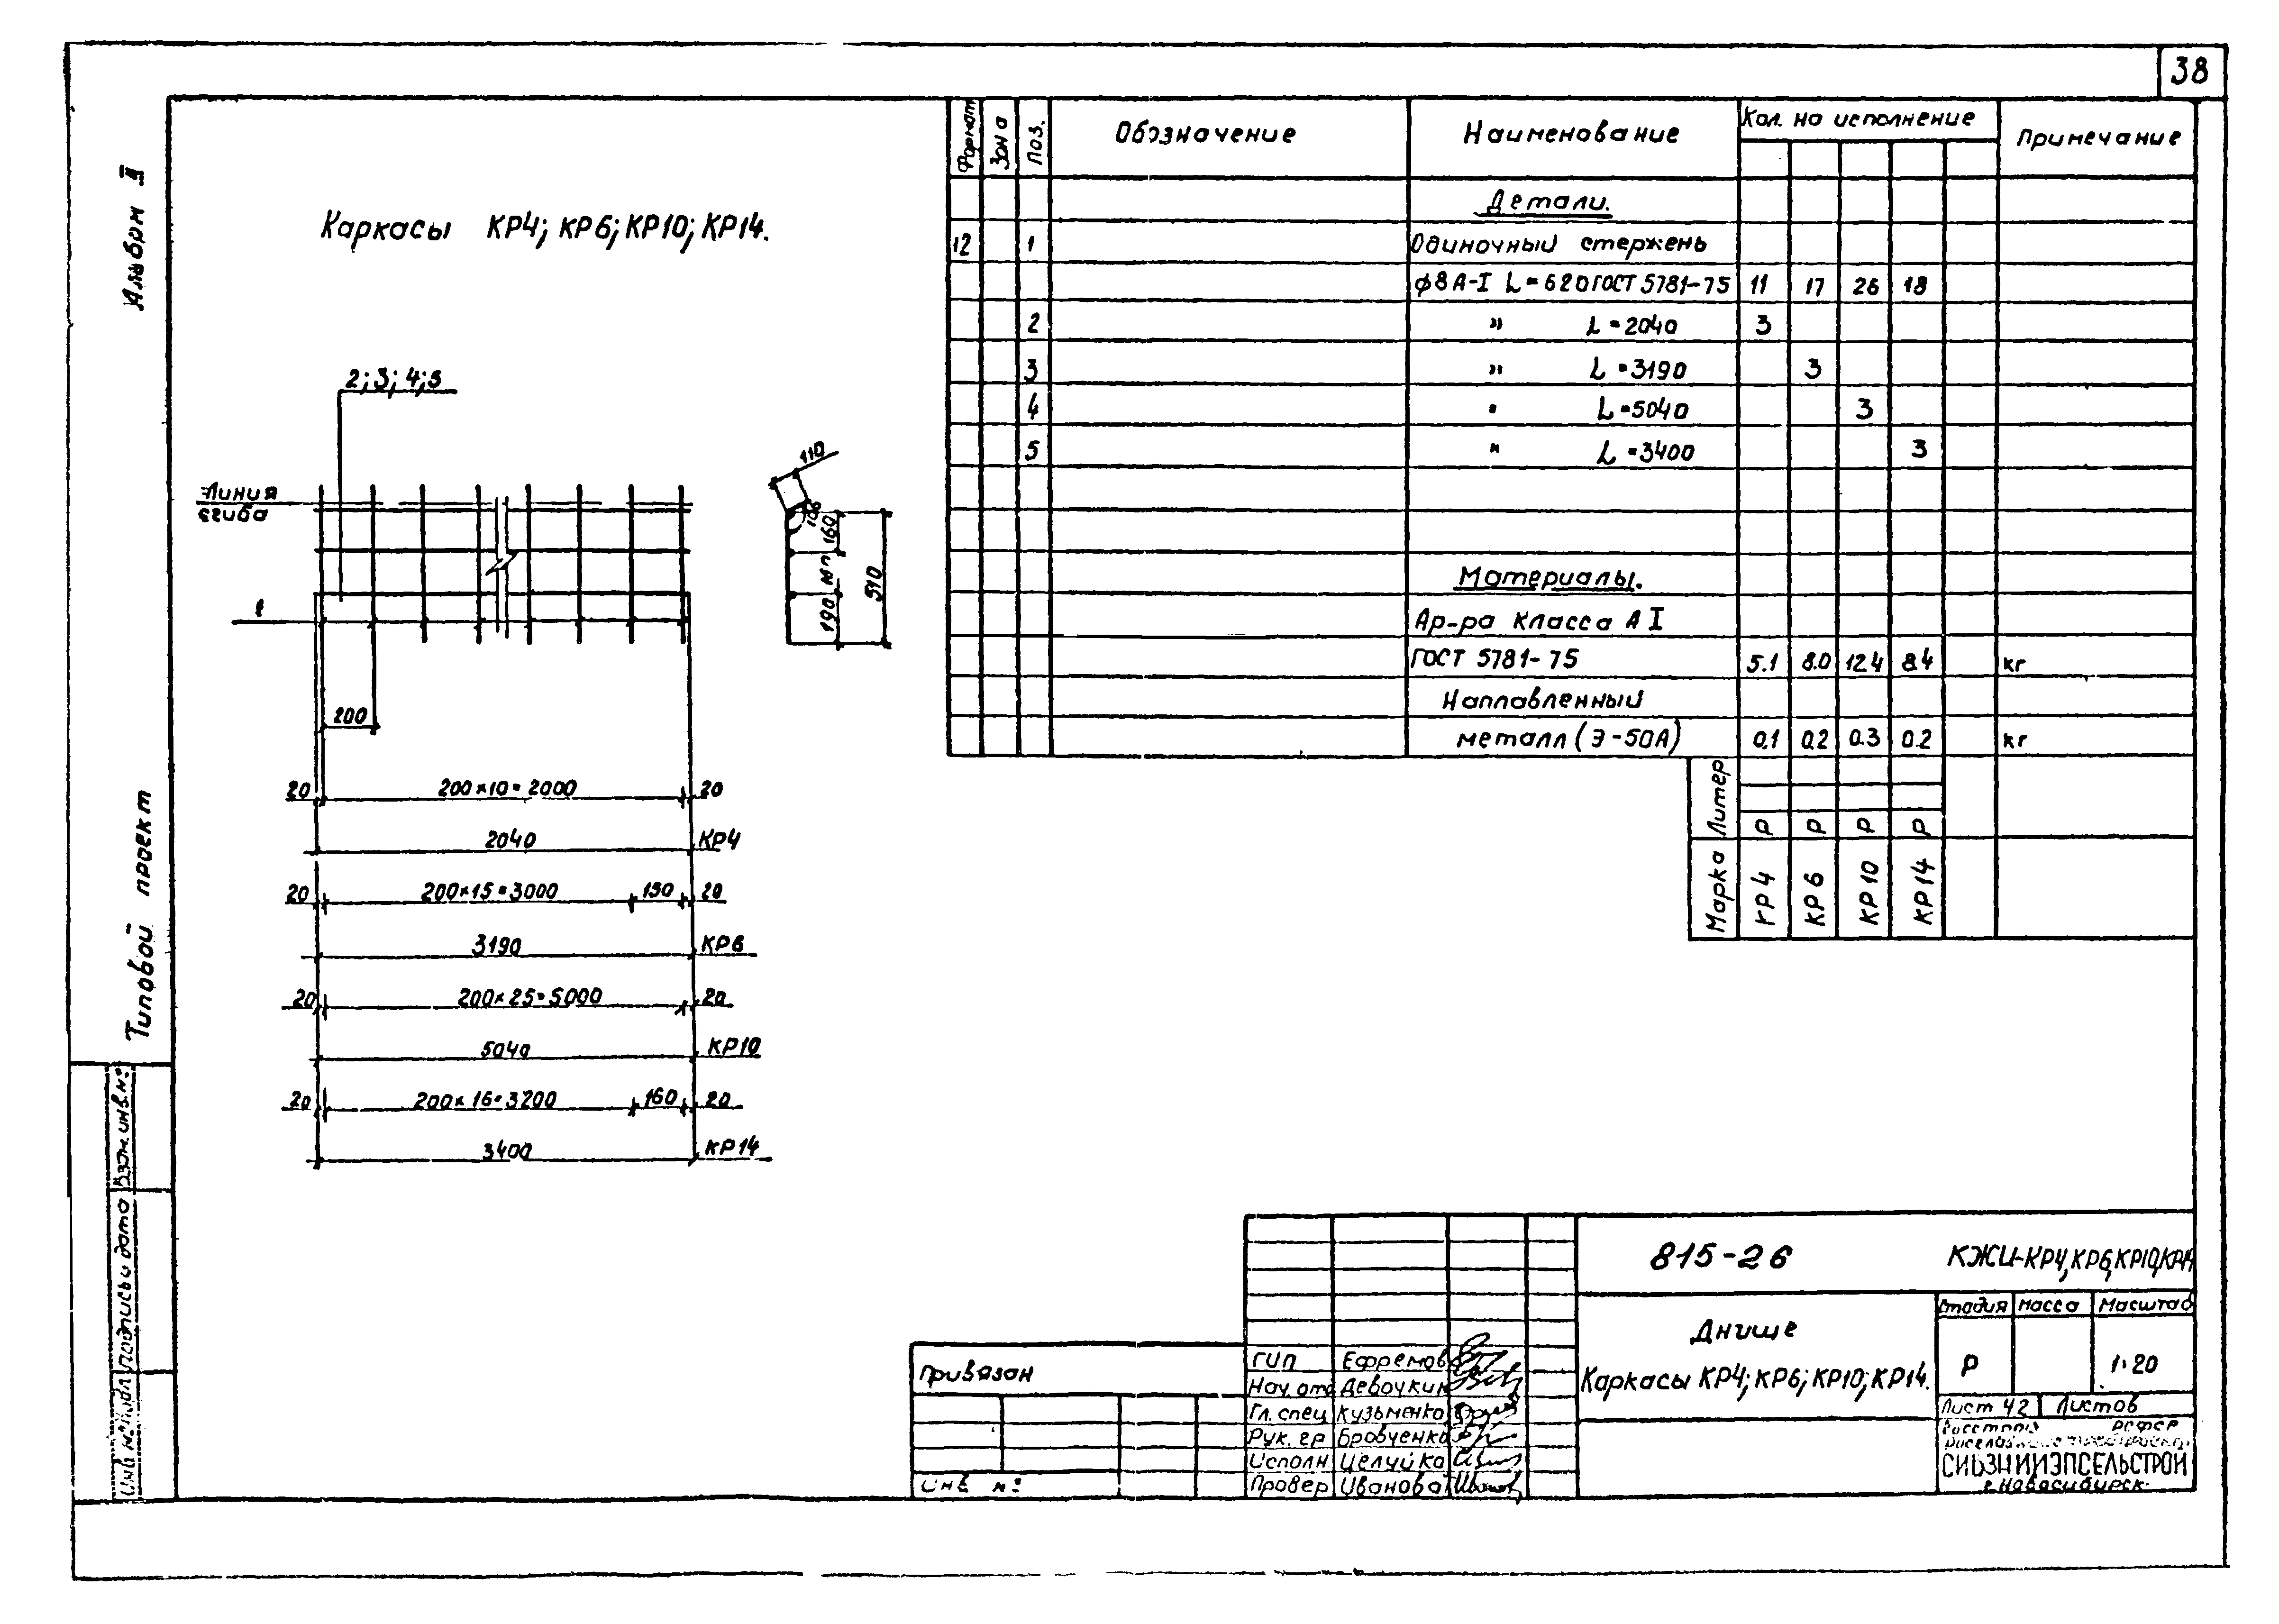 38
Альбом II
Типовой проект
Каркасы КР4; КР6; КР10; КР14.
2; 3; 4; 5
Линия
сгиба
1
200
20 200×10=2000 20
2040 КР4
20 200×15=3000 150 20
3190 КР6
20 200×25=5000 20
5040 КР10
20 200×16=3200 160 20
3400 КР14
110
160
190
510
Формат Зона Поз. Обозначение Наименование Кол. на исполнение Примечание
Детали.
12 1 Одиночный стержень
ф8 А-I L=620 ГОСТ 5781-75 11 17 26 18
2 " L=2040 3
3 " L=3190 3
4 " L=5040 3
5 " L=3400 3
Материалы.
Ар-ра класса А I
ГОСТ 5781-75 5.1 8.0 12.4 8.4 кг
Наплавленный
металл (Э-50А) 0.1 0.2 0.3 0.2 кг
Литер Р Р Р Р
Марка КР4 КР6 КР10 КР14
815-26 КЖИ-КР4, КР6, КР10, КР14
Днище
Каркасы КР4; КР6; КР10; КР14.
Стадия Масса Масштаб
Р 1:20
Лист 42 Листов
Росстрой РСФСР
СИБЗНИИЭПСЕЛЬСТРОЙ
г. Новосибирск
ГИП Ефремов
Нач. отд Девочкин
Гл. спец Кузьменко
Рук. гр Бровченко
Исполн Целуйко
Провер Иванова
Привязан
Инв №
Взам. инв. №
Подпись и дата
Инв № подл